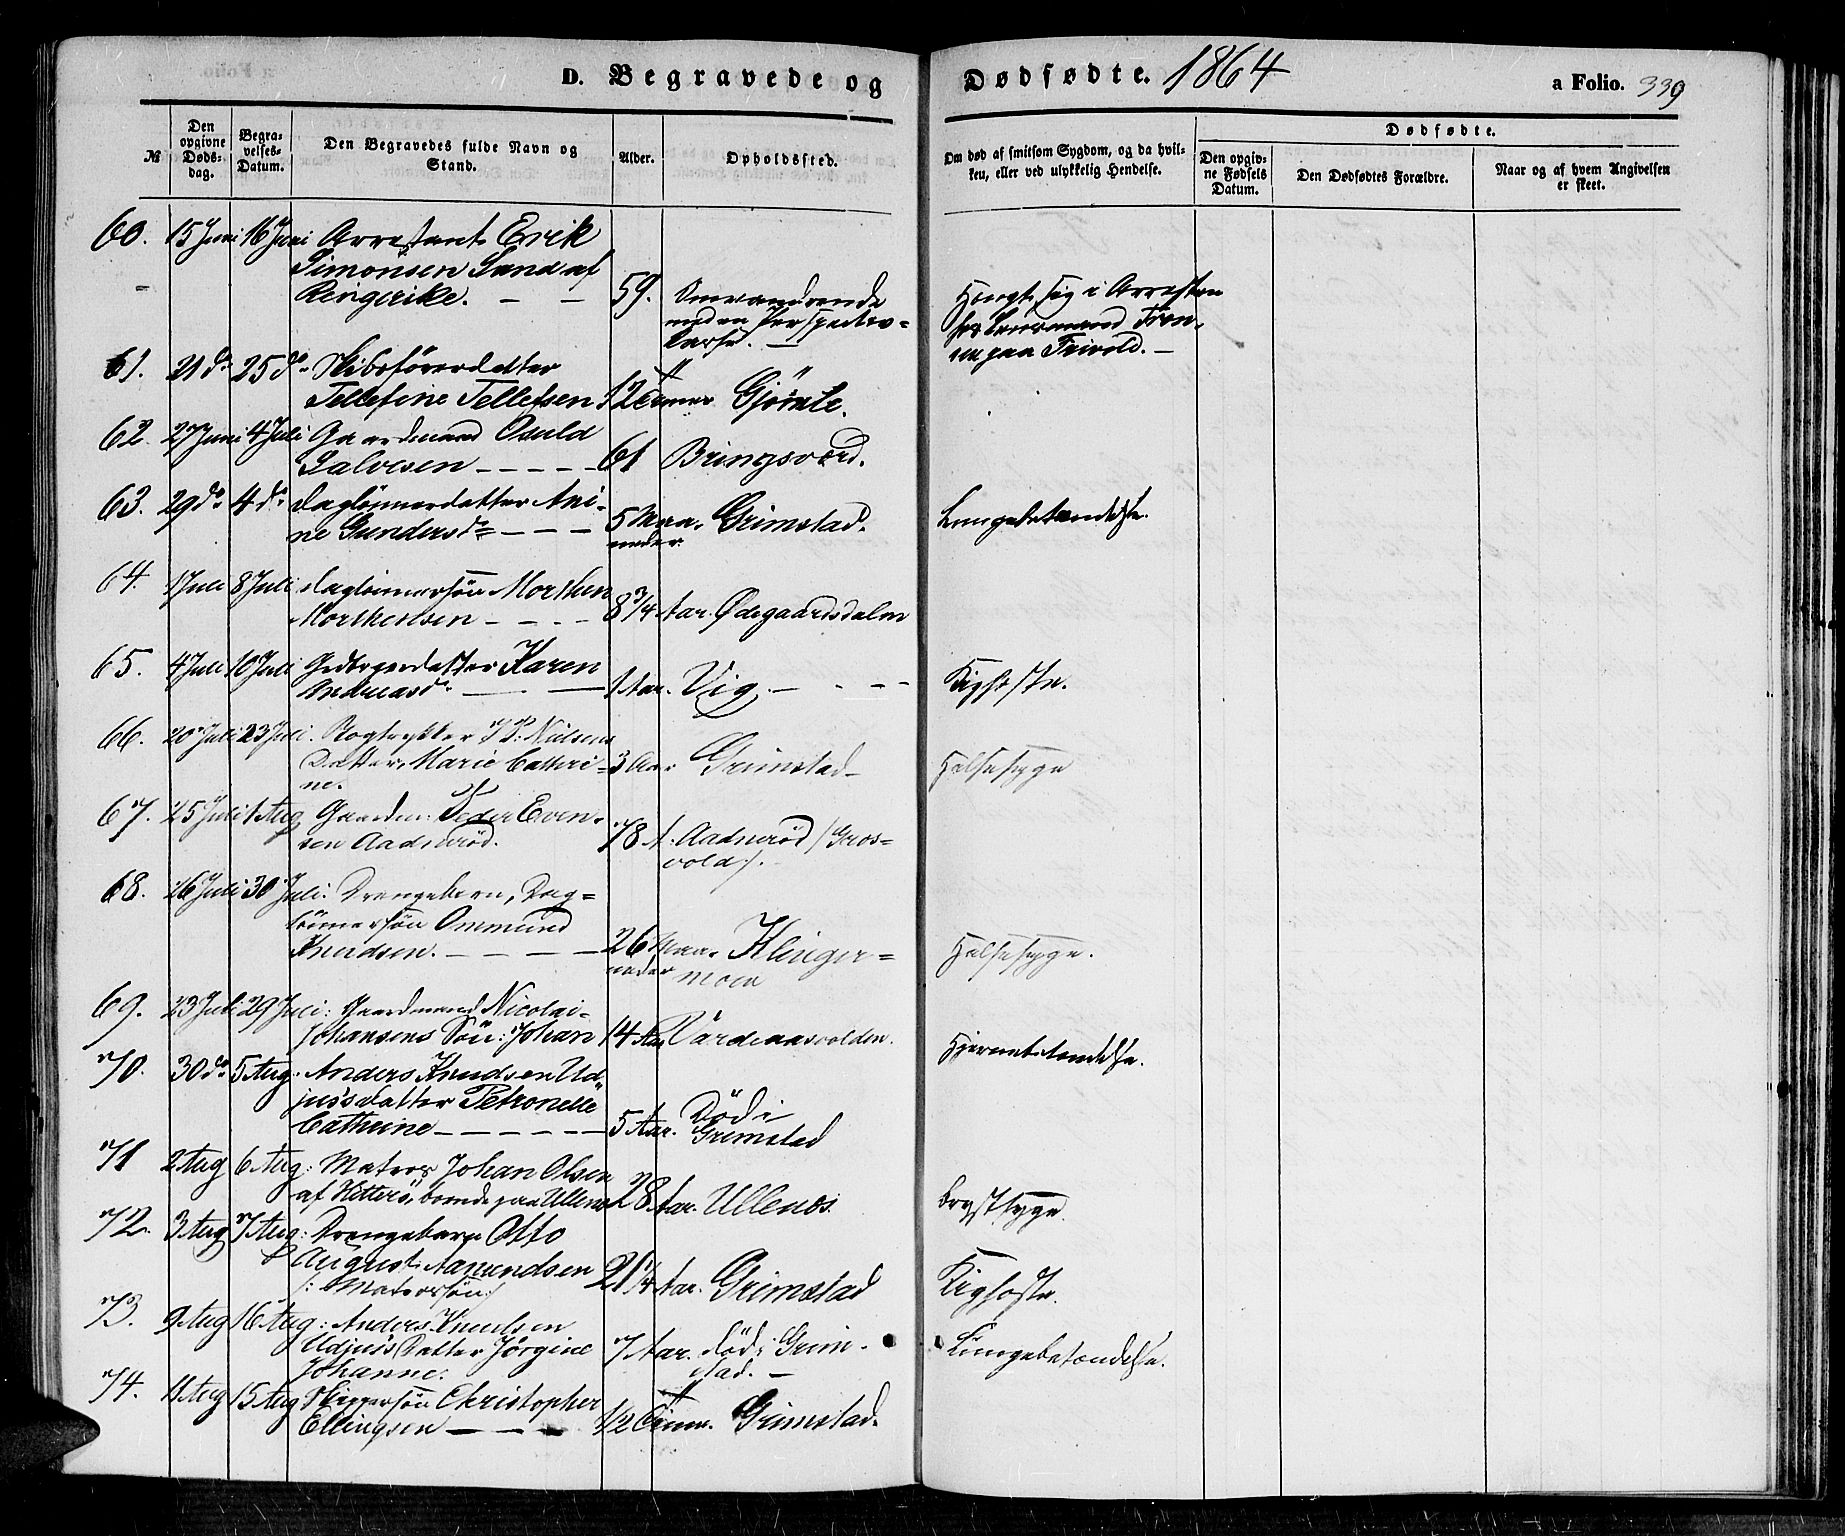 D. Begravede og Dødfødte. 1864 a Folio. 339
№
Den opgivne Døds-dag.
Begra-velses-Datum.
Den Begravedes fulde Navn og Stand.
Alder.
Opholdssted.
Om død af smitsom Sygdom, og da hvil-
ken, eller ved ulykkelig Hendelse.
Dødfødte.
Den opgiv-ne Fødsels Datum.
Den Dødfødtes Forældre.
Naar og af hvem Angivelsen er skeet.
60. 15 Juni 16 Juni Arrestant Erik
Simonsen Sand af
Ringerike. 59. Omvandrende
med en Perspectiv-
kasse.
Hengt sig i Arresten
paa Frivold.
61. 21 do 25 do Skibsførerdatter
Tellefine Tellefsen 12 Timer Gjömle.
62. 27 Juni 4 Juli Gaardmand Osuld
Salvesen 61 Bringsværd.
63. 29 do 4 do Daglönnerdatter Ani-
ne Gundersd. 5 Maa-
neder. Grimstad. Lungebetændelse.
64. 1 Juli 8 Juli Daglönnersön Morthen
Morthensen 8 3/4 Aar. Ødegaardsdalen
65. 4 Juli 10 Juli datter Karen
Andreasd. 1 Aar. Vig. Kighoste.
66. 20 Juli 23 Juli. Bogtrykker Nielsens
Datter, Marie Catheri-
ne. 3 Aar Grimstad Halsesyge
67. 25 Juli 1 Aug Gaardm: Peder Even-
sen Aadneröd. 78 A. Aadneröd /: Gros-
vold :/.
68. 26 Juli 30 Juli: Drengebarn, Dag-
lönnersön Ommund
Knudsen. 26 Maa-
neder Klinger-
moen Halsesyge.
69. 23 Juli 29 Juli: Gaardmand Nicolai
Johansens Sön: Johan 14 Aar Vardeaasvolden. Hjernebetændelse.
70. 30 do 5 Aug. Anders Knudsen Ud-
jus's Datter Petronelle
Cathrine 5 Aar. Död i
Grimstad
71 2 Aug 6 Aug: Matros Johan Olsen
af Hitterö, boende paa Ullenes 28 Aar. Ullenes. Brystsyge.
72. 3 Aug 7 Aug: Drengebarn Otto
August Aamundsen
/: Matrossön :/ 2 1/4 Aar. Grimstad Kighoste.
73. 9 Aug 16 Aug: Anders Knudsen
Udjus's Datter Jörgine
Johanne. 7 Aar. död i Grim-
stad. Lungebetændelse.
74. 11 Aug 15 Aug Skippersön Christopher
Ellingsen 1/2 Time. Grimstad.